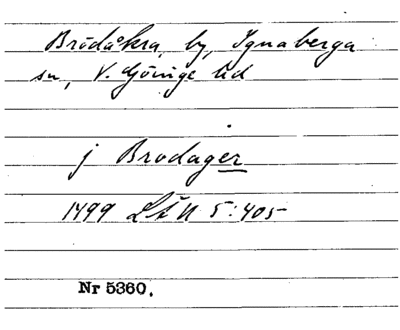 Brödåkra, by, Ignaberga
sn, V. Göinge hd
j Brodager
1499 LÅU 5:405
Nr 5360.